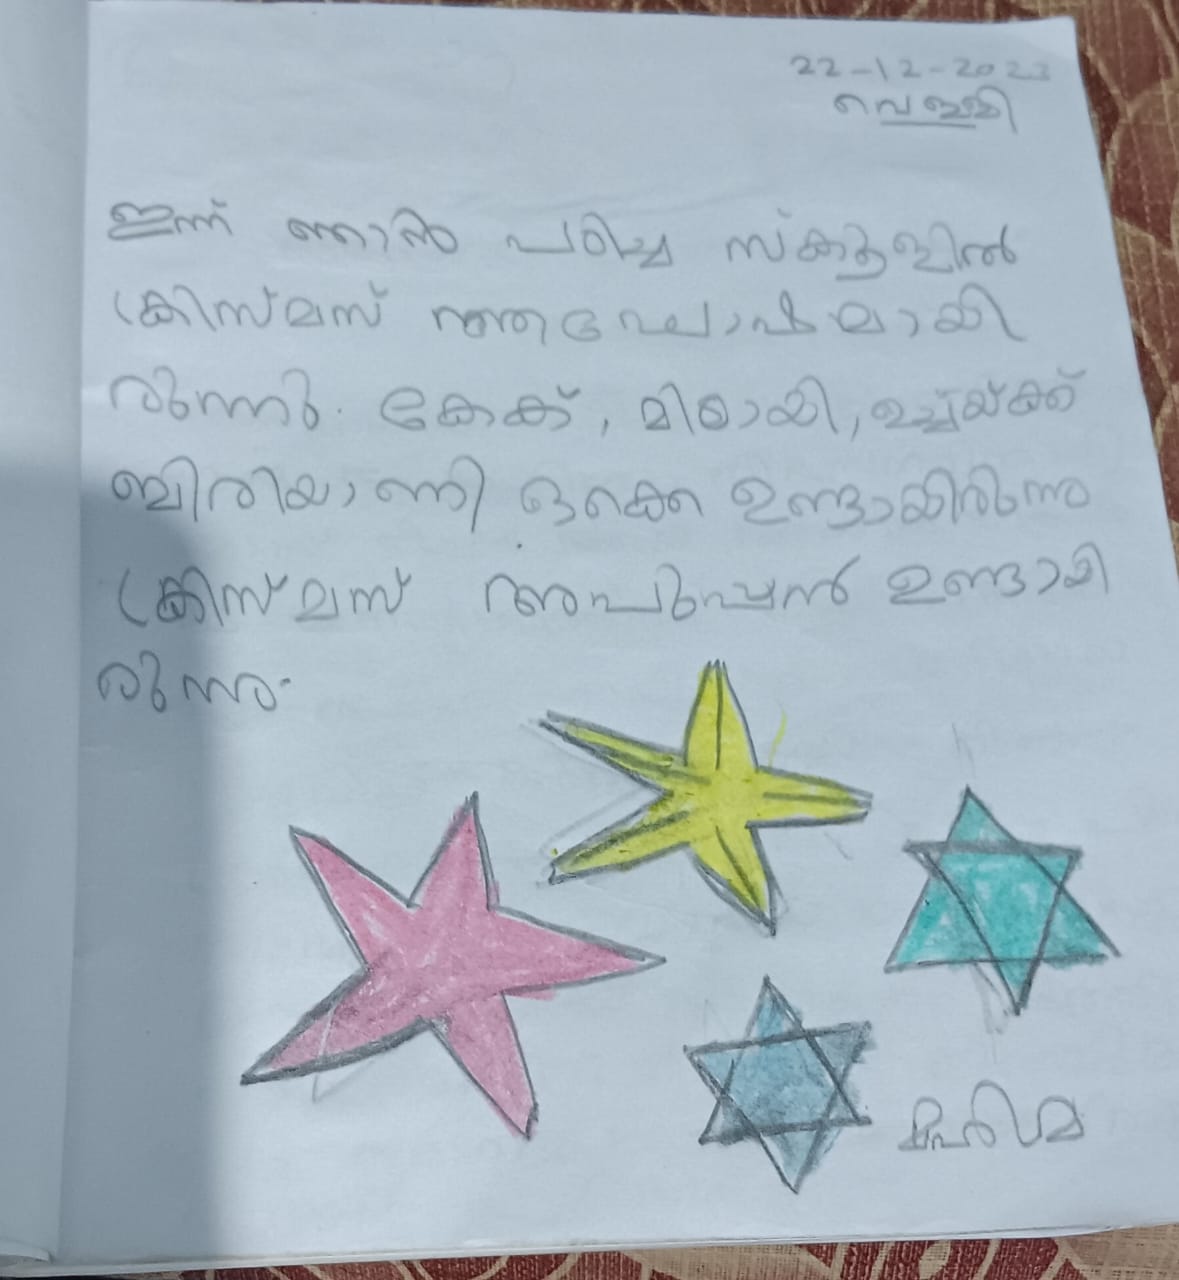 22-12-2023
വെള്ളി
ഇന്ന് ഞാൻ പഠിച്ച സ്കൂളിൽ
ക്രിസ്മസ് ആഘോഷമായി
രുന്നു. കേക്ക്, മിഠായി, ഉച്ചയ്ക്ക്
ബിരിയാണി ഒക്കെ ഉണ്ടായിരുന്നു
ക്രിസ്മസ് അപ്പൂപ്പൻ ഉണ്ടായി
രുന്നു.